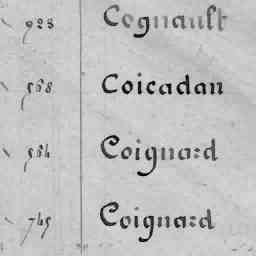 923 Cognault
568 Coicadan
564 Coignard
745 Coignard